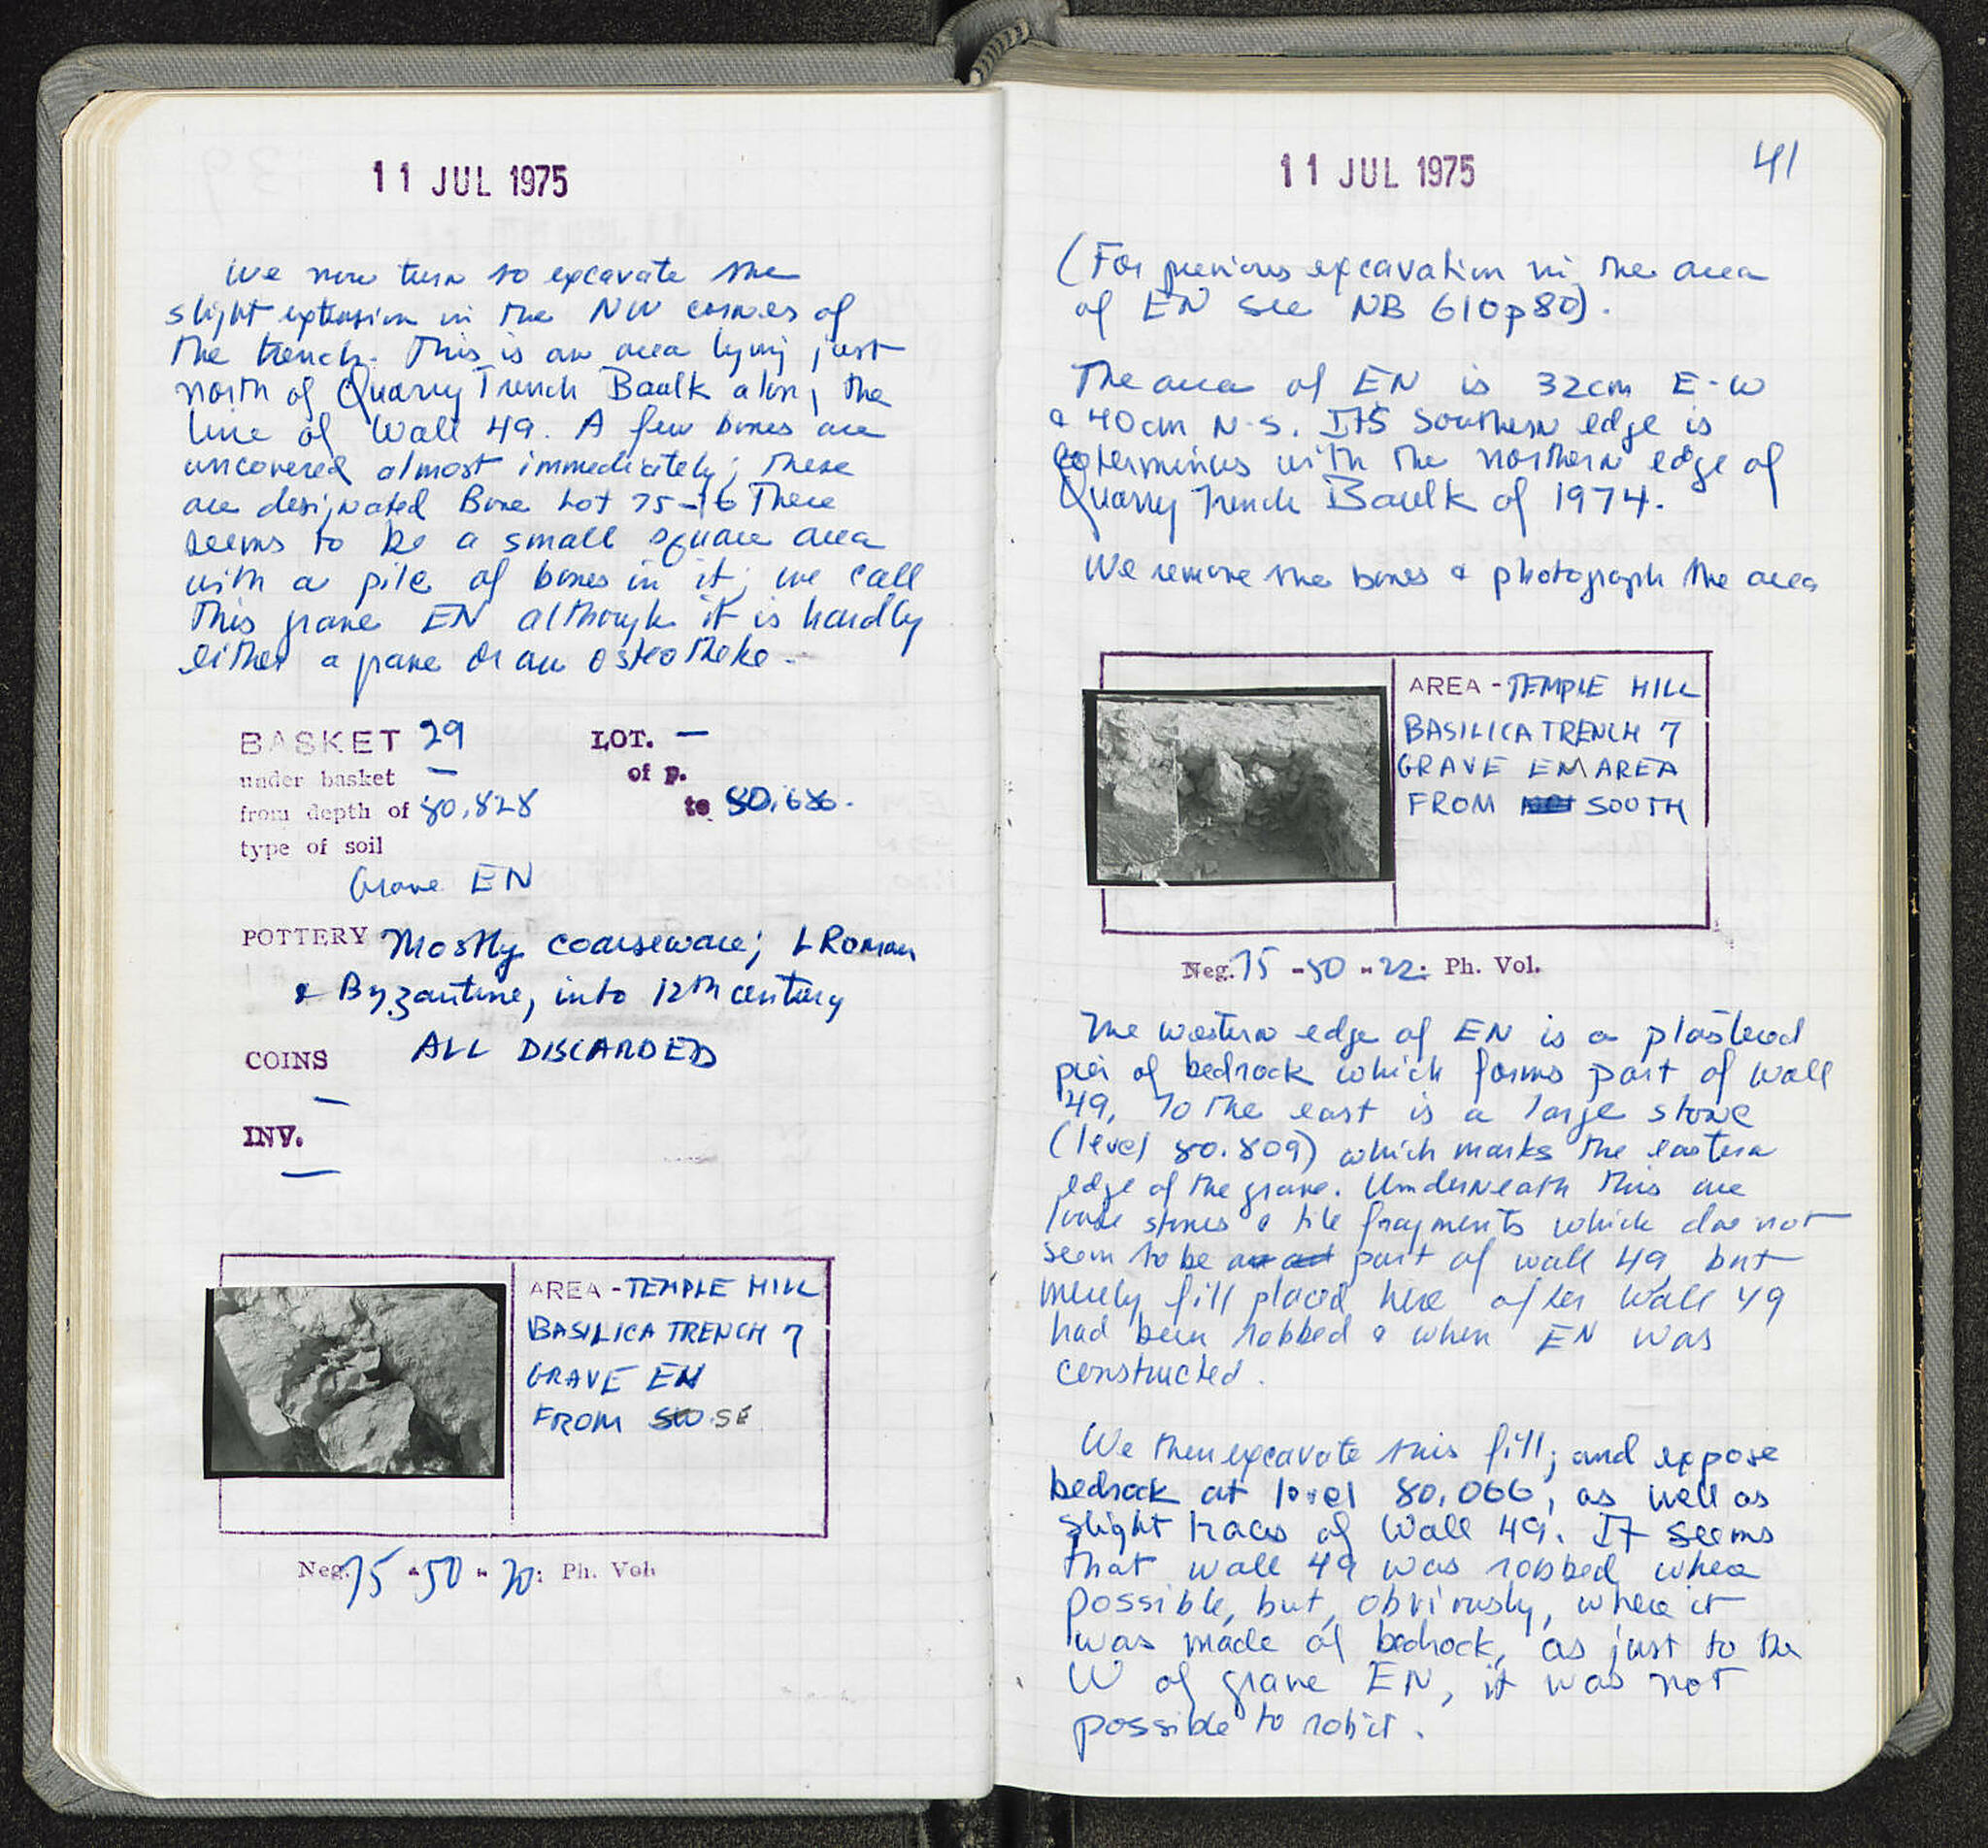 11 JUL 1975
We now turn to excavate the
slight extension in the NW corner of
the trench. This is an area lying just
north of Quarry Trench Baulk along the
line of Wall 49. A few bones are
uncovered almost immediately; these
are designated Bone Lot 75-16 There
seems to be a small square area
with a pile of bones in it; we call
this grave EN although it is hardly
either a grave or an osteotheke.
BASKET 29 LOT. —
under basket — of p.
from depth of 80.828 to 80.686.
type of soil
Grave EN
POTTERY Mostly coarseware; L Roman
& Byzantine, into 12th century
ALL DISCARDED
COINS
—
INV.
—
AREA - TEMPLE HILL
BASILICA TRENCH 7
GRAVE EN
FROM SW SE
Neg. 75 - 50 - 20: Ph. Vol.
11 JUL 1975 41
(For previous excavation in the area
of EN see NB 610 p 80).
The area of EN is 32cm E-W
& 40cm N-S. ItS Southern edge is
coterminus with the northern edge of
Quarry Trench Baulk of 1974.
We remove the bones & photograph the area
AREA - TEMPLE HILL
BASILICA TRENCH 7
GRAVE EN AREA
FROM SOUTH
Neg. 75 - 50 - 22: Ph. Vol.
The western edge of EN is a plastered
pier of bedrock which forms part of wall
49. To the east is a large stone
(level 80.809) which marks the eastern
edge of the grave. Underneath this are
loose stones & tile fragments which do not
seem to be part of wall 49, but
merely fill placed here after Wall 49
had been robbed & when EN was
constructed.
We then excavate this fill; and expose
bedrock at level 80.066, as well as
slight traces of Wall 49. It seems
that wall 49 was robbed where
possible, but, obviously, where it
was made of bedrock, as just to the
W of grave EN, it was not
possible to rob it.